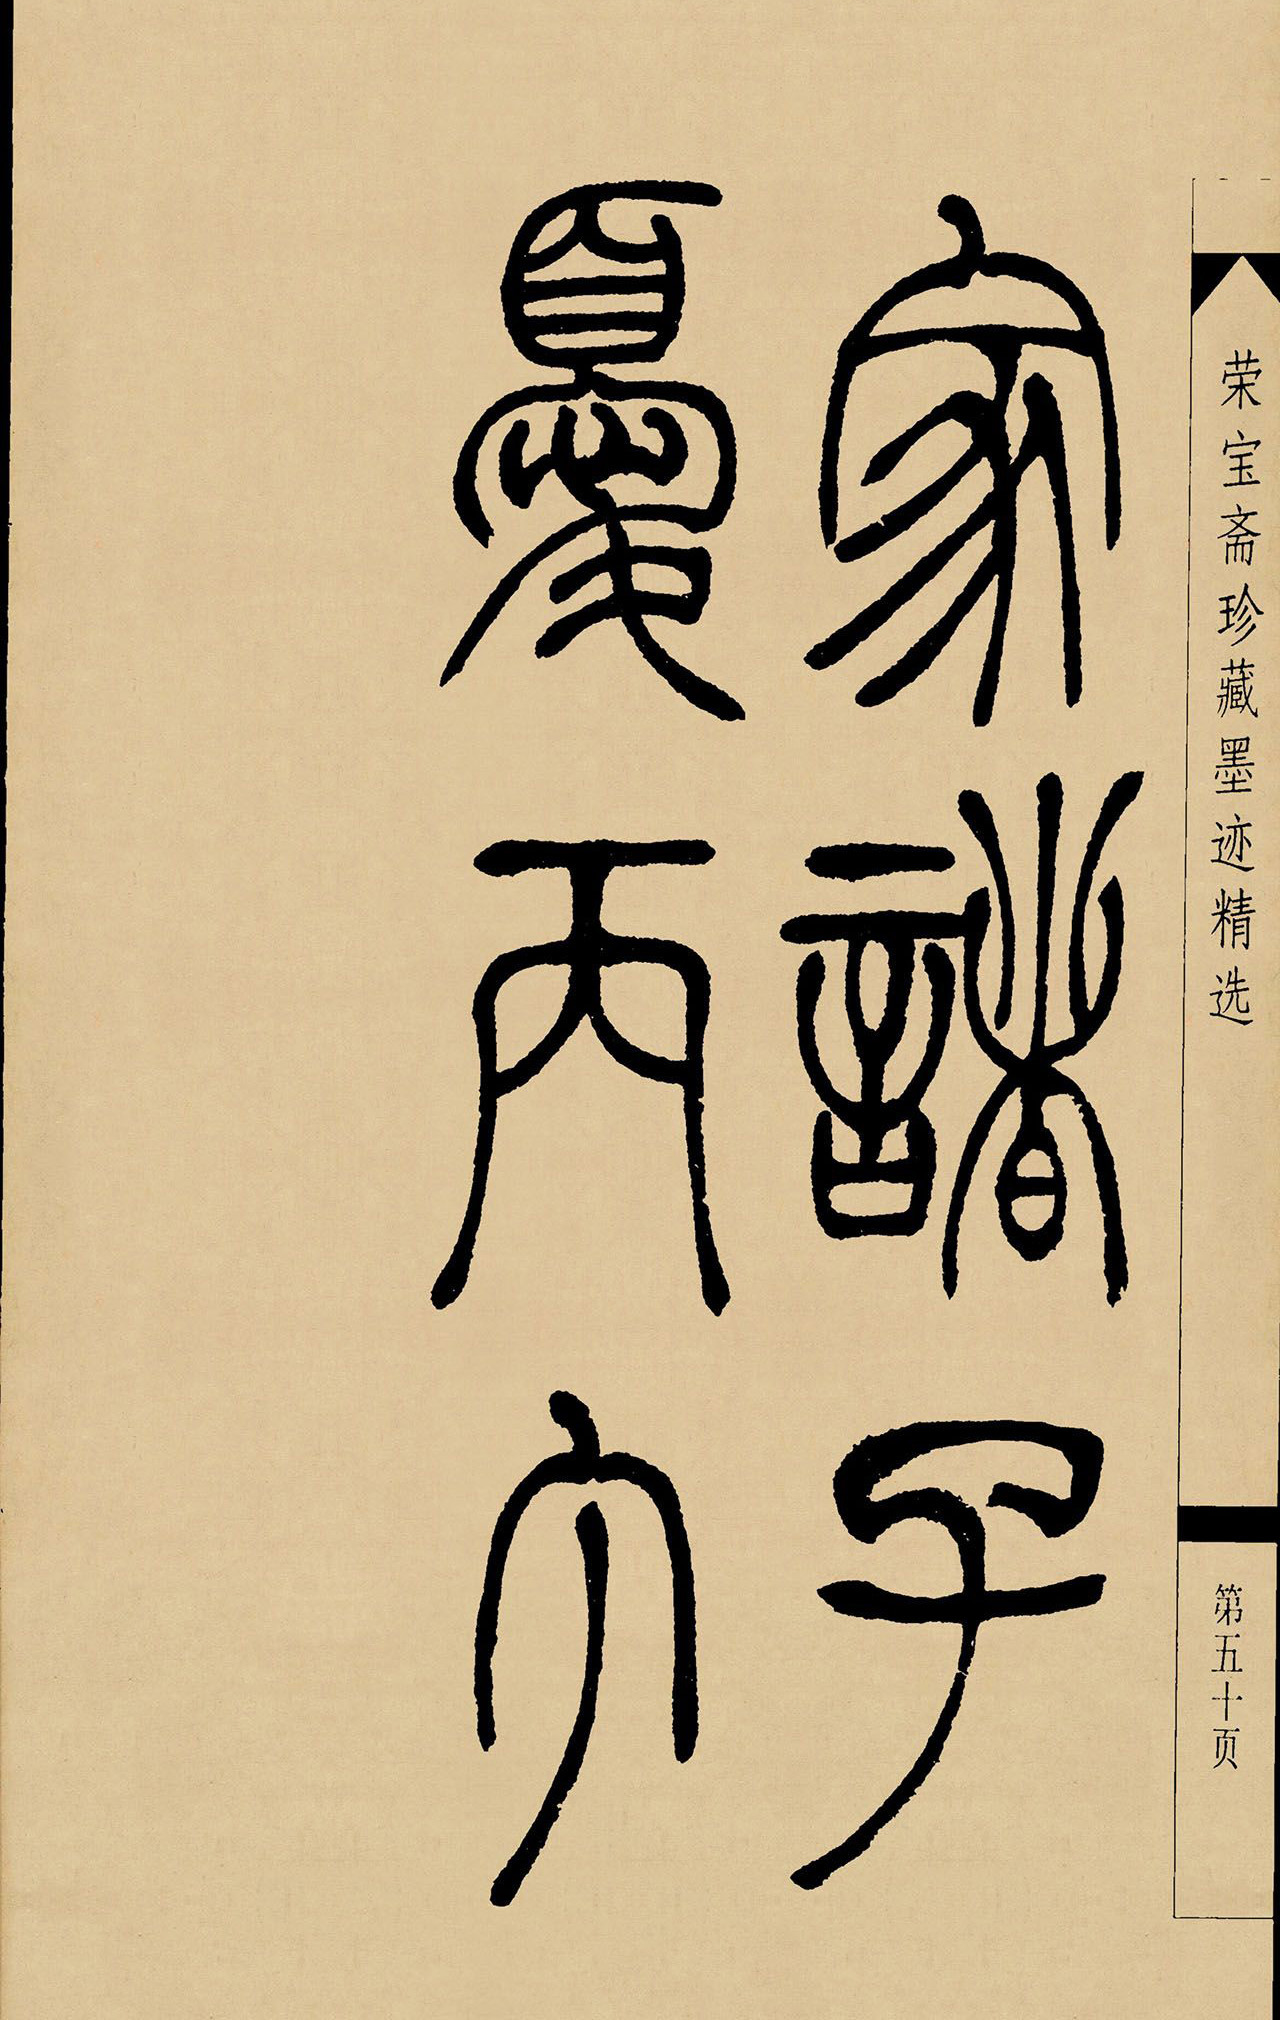 家諸子
憂丙
荣宝斋珍藏墨迹精选
第五十页